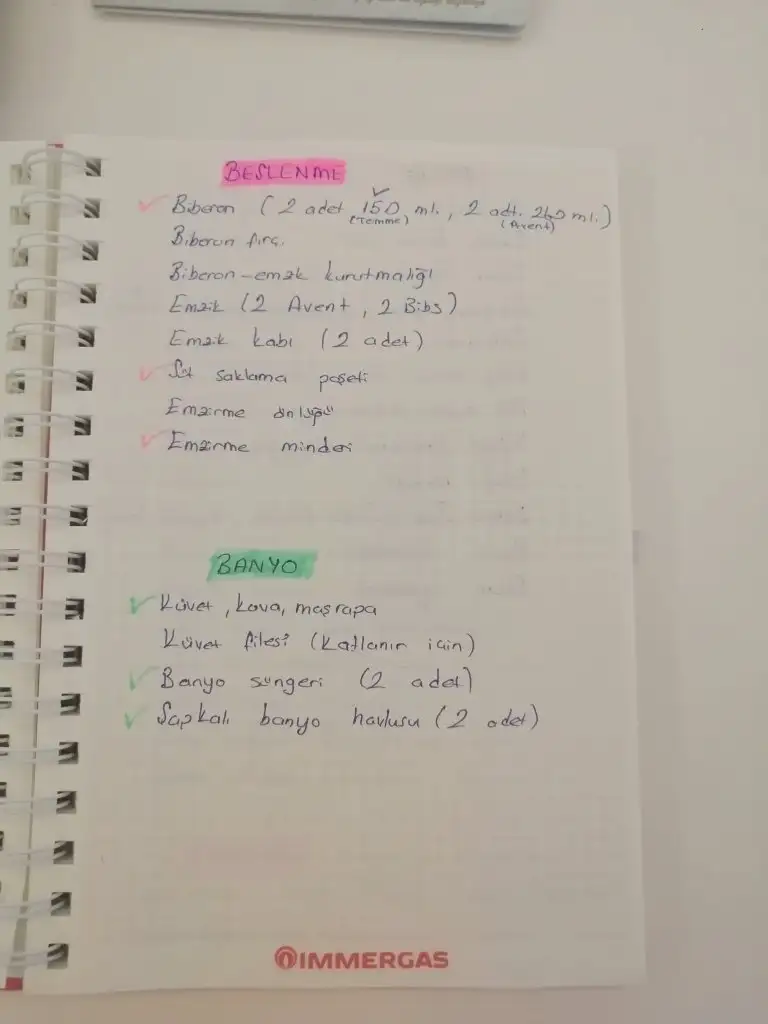 BESLENME
✓ Biberon (2 adet 150 ml., 2 adt. 240 ml.)
(Temme) (Avent)
Biberon fırç.
Biberon-emzik kurutmalığı
Emzik (2 Avent, 2 Bibs)
Emzik kabı (2 adet)
✓ Süt saklama poşeti
Emzirme önlüğü
✓ Emzirme minderi
BANYO
✓ Küvet, kova, maşrapa
Küvet filesi (Katlanır için)
✓ Banyo süngeri (2 adet)
✓ Şapkalı banyo havlusu (2 adet)
IMMERGAS